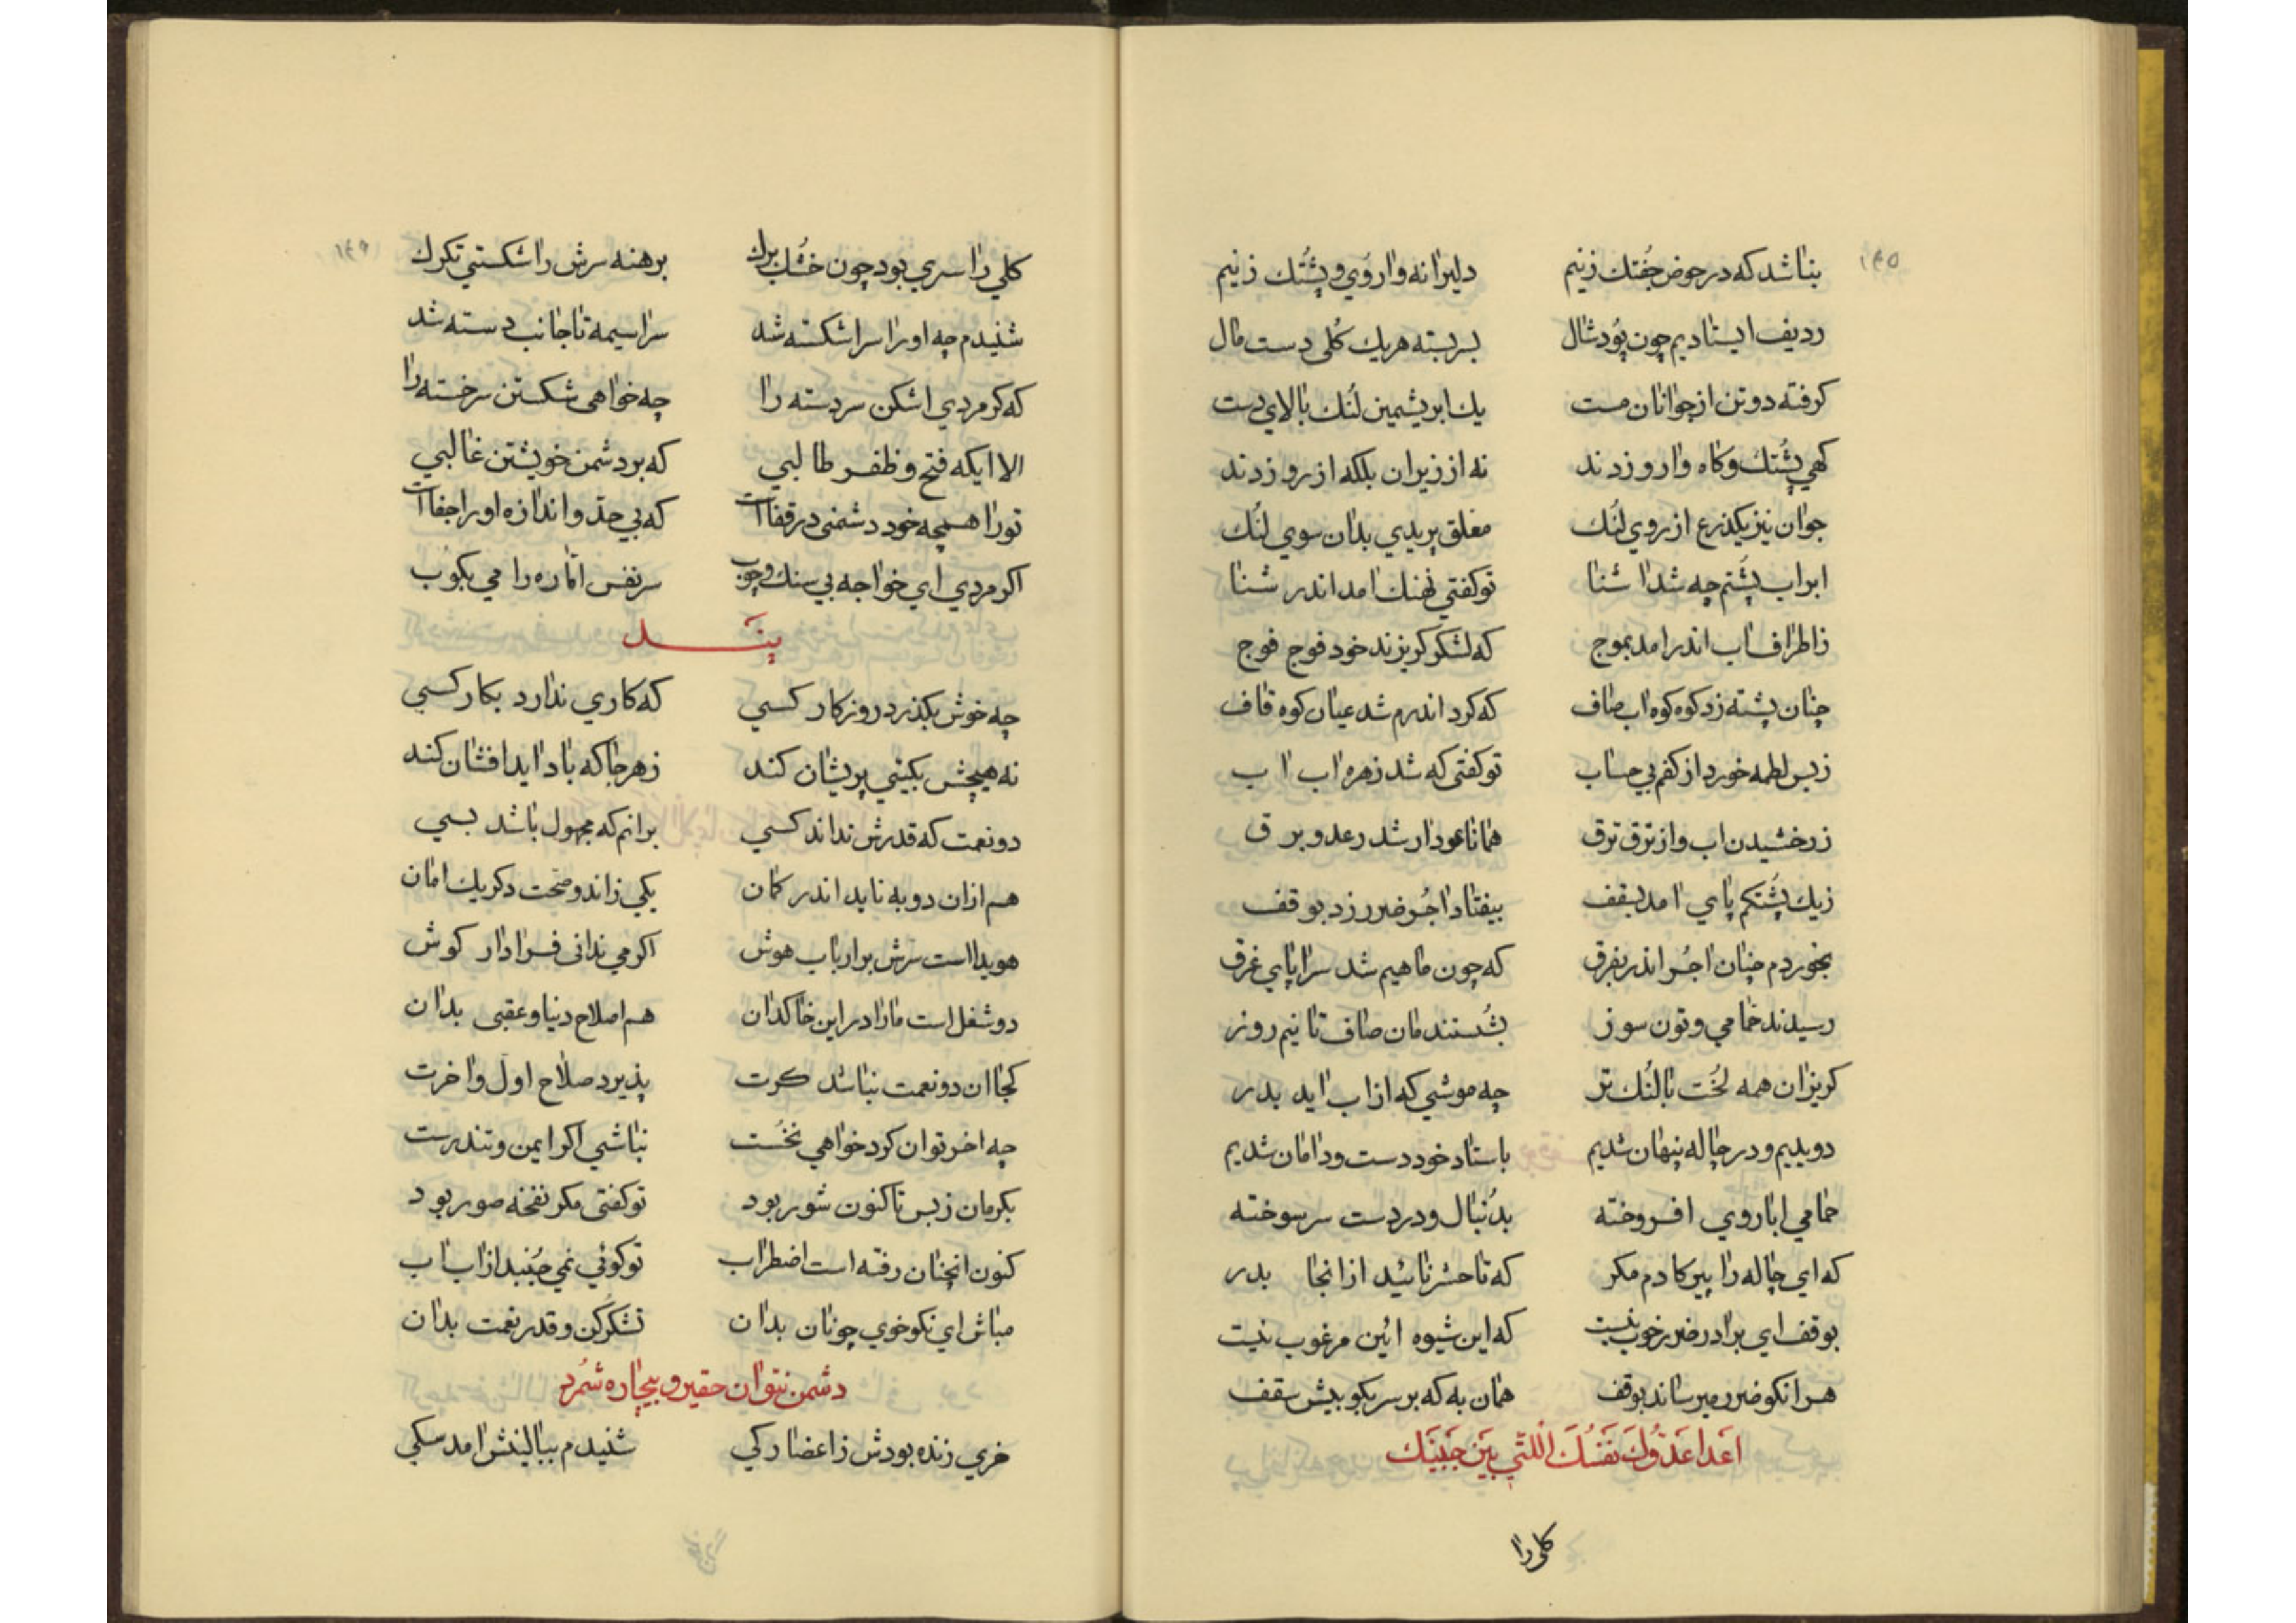 ١٤٥
بناشد که در حوض جُفتك زنیم دلیرانه وارُوی و پُشتك زنیم
ردیف ایستادیم چون پُود شال بر بسته هریك کُلی دست مال
کرفته دو تن از جوانان مست یك ابریشمین لُنك بالای دست
کهی پُشتك وکاه وارو زدند نه از زیران بلکه از رو زدند
جوان نیز یکذرع از روی لُنك معلق پریدی بدان سوی لُنك
ابر اب پَشتم چه شد اشنا توکفتی نهنك امد اندر شنا
زاطراف اب اندر امد بموج که لشکر کریزند خود فوج فوج
چنان پشته زد کوه کوه اب صاف که کرد اندرم شد عیان کوه قاف
زبس لطمه خورد از کفم بی حساب توکفتی که شد زهره اب اب
زرخشیدن اب و از ترق ترق همانا عودار شد رعد و برق
زیك پُشتکم پای امد بسقف بیفتاد اجُر ضرر زد بوقف
بخوردم چنان اجُر اندر بفرق که چون ماهیم شد سراپای غرق
رسیدند حمامی و تون سوز بشُستند مان صاف تا نیم روز
کریزان همه لُخت با لُنك تر چه موشی که از اب اید بدر
دویدیم و در چاله پنهان شدیم باستاد خود دست و دامان شدیم
حمامی ابا روی افروخته بدُنبال و در دست سرسوخته
که ای چاله را پیر کادم مکر که تا حشر نائید از انجا بدر
بوقف ای برادر ضرر خوب نیست که این شیوه ائین مرغوب نیست
هر انکو ضرر میرساند بوقف همان به که بر سر بکوبیش سقف
اَعدا عَدُوُّكَ نَفسُكَ اللتی بَینَ جَنبَیك
کلی را
١٤٦
کلی را سری بود چون خُشك برك برهنه سرش را شکستی تکرك
شنیدم چه او را سر اشکسته شد سراسیمه تا جانب دسته شد
که کر مردی اشکن سر دسته را چه خواهی شکستن سر خسته را
الا ایکه فتح و ظفر طالبی که بر دشمن خویشتن غالبی
تو را همچه خود دشمنی در قفا است که بی حدّ و اندازه او را جفا است
اکر مردی ای خواجه بی سنك و چوب سر نفس اماره را می بکوب
پنَـد
چه خوش بکذرد روزکار کسی که کاری ندارد بکار کسی
نه هیچش بکیتی پریشان کند زهر جا که باد اید افشان کند
دو نعمت که قدرش نداند کسی برانم که مجهول باشد بسی
هم از ان دو به ناید اندر کمان یکی زاند و صحّت دکر یك امان
هویدا است سرّش بر ارباب هوش اکر می ندانی فرا دار کوش
دو شغل است ما را در این خاکدان هم اصلاح دنیا و عقبی بدان
کجا ان دو نعمت نباشد کرت پذیرد صلاح اول و اخرت
چه اخر توان کرد خواهی نخُست نباشی اکر ایمن و تندرست
بکرمان زبس تا کنون شور بود توکفتی مکر نفخه صور بود
کنون انچنان رفته است اضطراب توکوئی نمی جُنبد از اب اب
مباش ای نکوخوی چونان بدان تشکُر کن و قدر نعمت بدان
دشمن نتوان حقیر و بیچاره شمُرد
خری زنده بودش ز اعضا رکی شنیدم ببالینش امد سکی